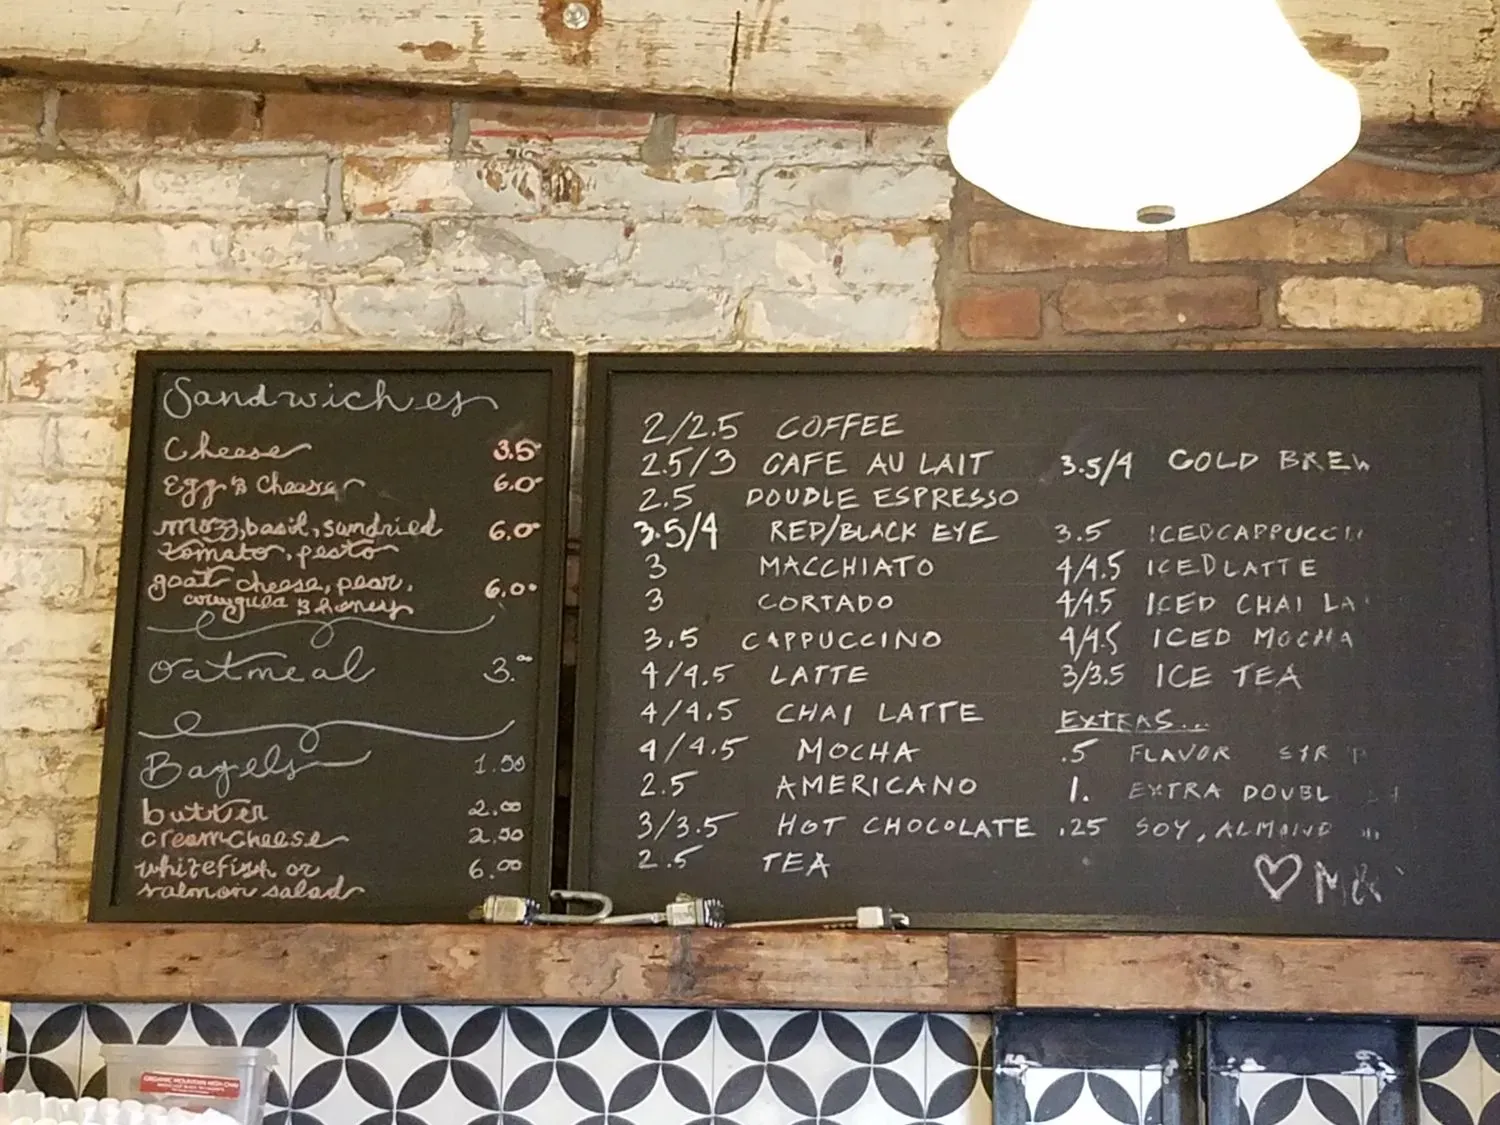 Sandwiches
Cheese 3.50
Egg & Cheese 6.00
mozz, basil, sundried 6.00
tomato, pesto
goat cheese, pear, 6.00
arugula & honey
Oatmeal 3.00
Bagels 1.50
butter 2.00
creamcheese 2.50
whitefish or 6.00
salmon salad
2/2.5 COFFEE
2.5/3 CAFE AU LAIT
2.5 DOUBLE ESPRESSO
3.5/4 RED/BLACK EYE
3 MACCHIATO
3 CORTADO
3.5 CAPPUCCINO
4/4.5 LATTE
4/4.5 CHAI LATTE
4/4.5 MOCHA
2.5 AMERICANO
3/3.5 HOT CHOCOLATE
2.5 TEA
3.5/4 COLD BREW
3.5 ICED CAPPUCCI
4/4.5 ICED LATTE
4/4.5 ICED CHAI LA
4/4.5 ICED MOCHA
3/3.5 ICE TEA
EXTRAS...
.5 FLAVOR
1. EXTRA DOUBL
.25 SOY, ALMOND
ORGANIC MOUNTAIN